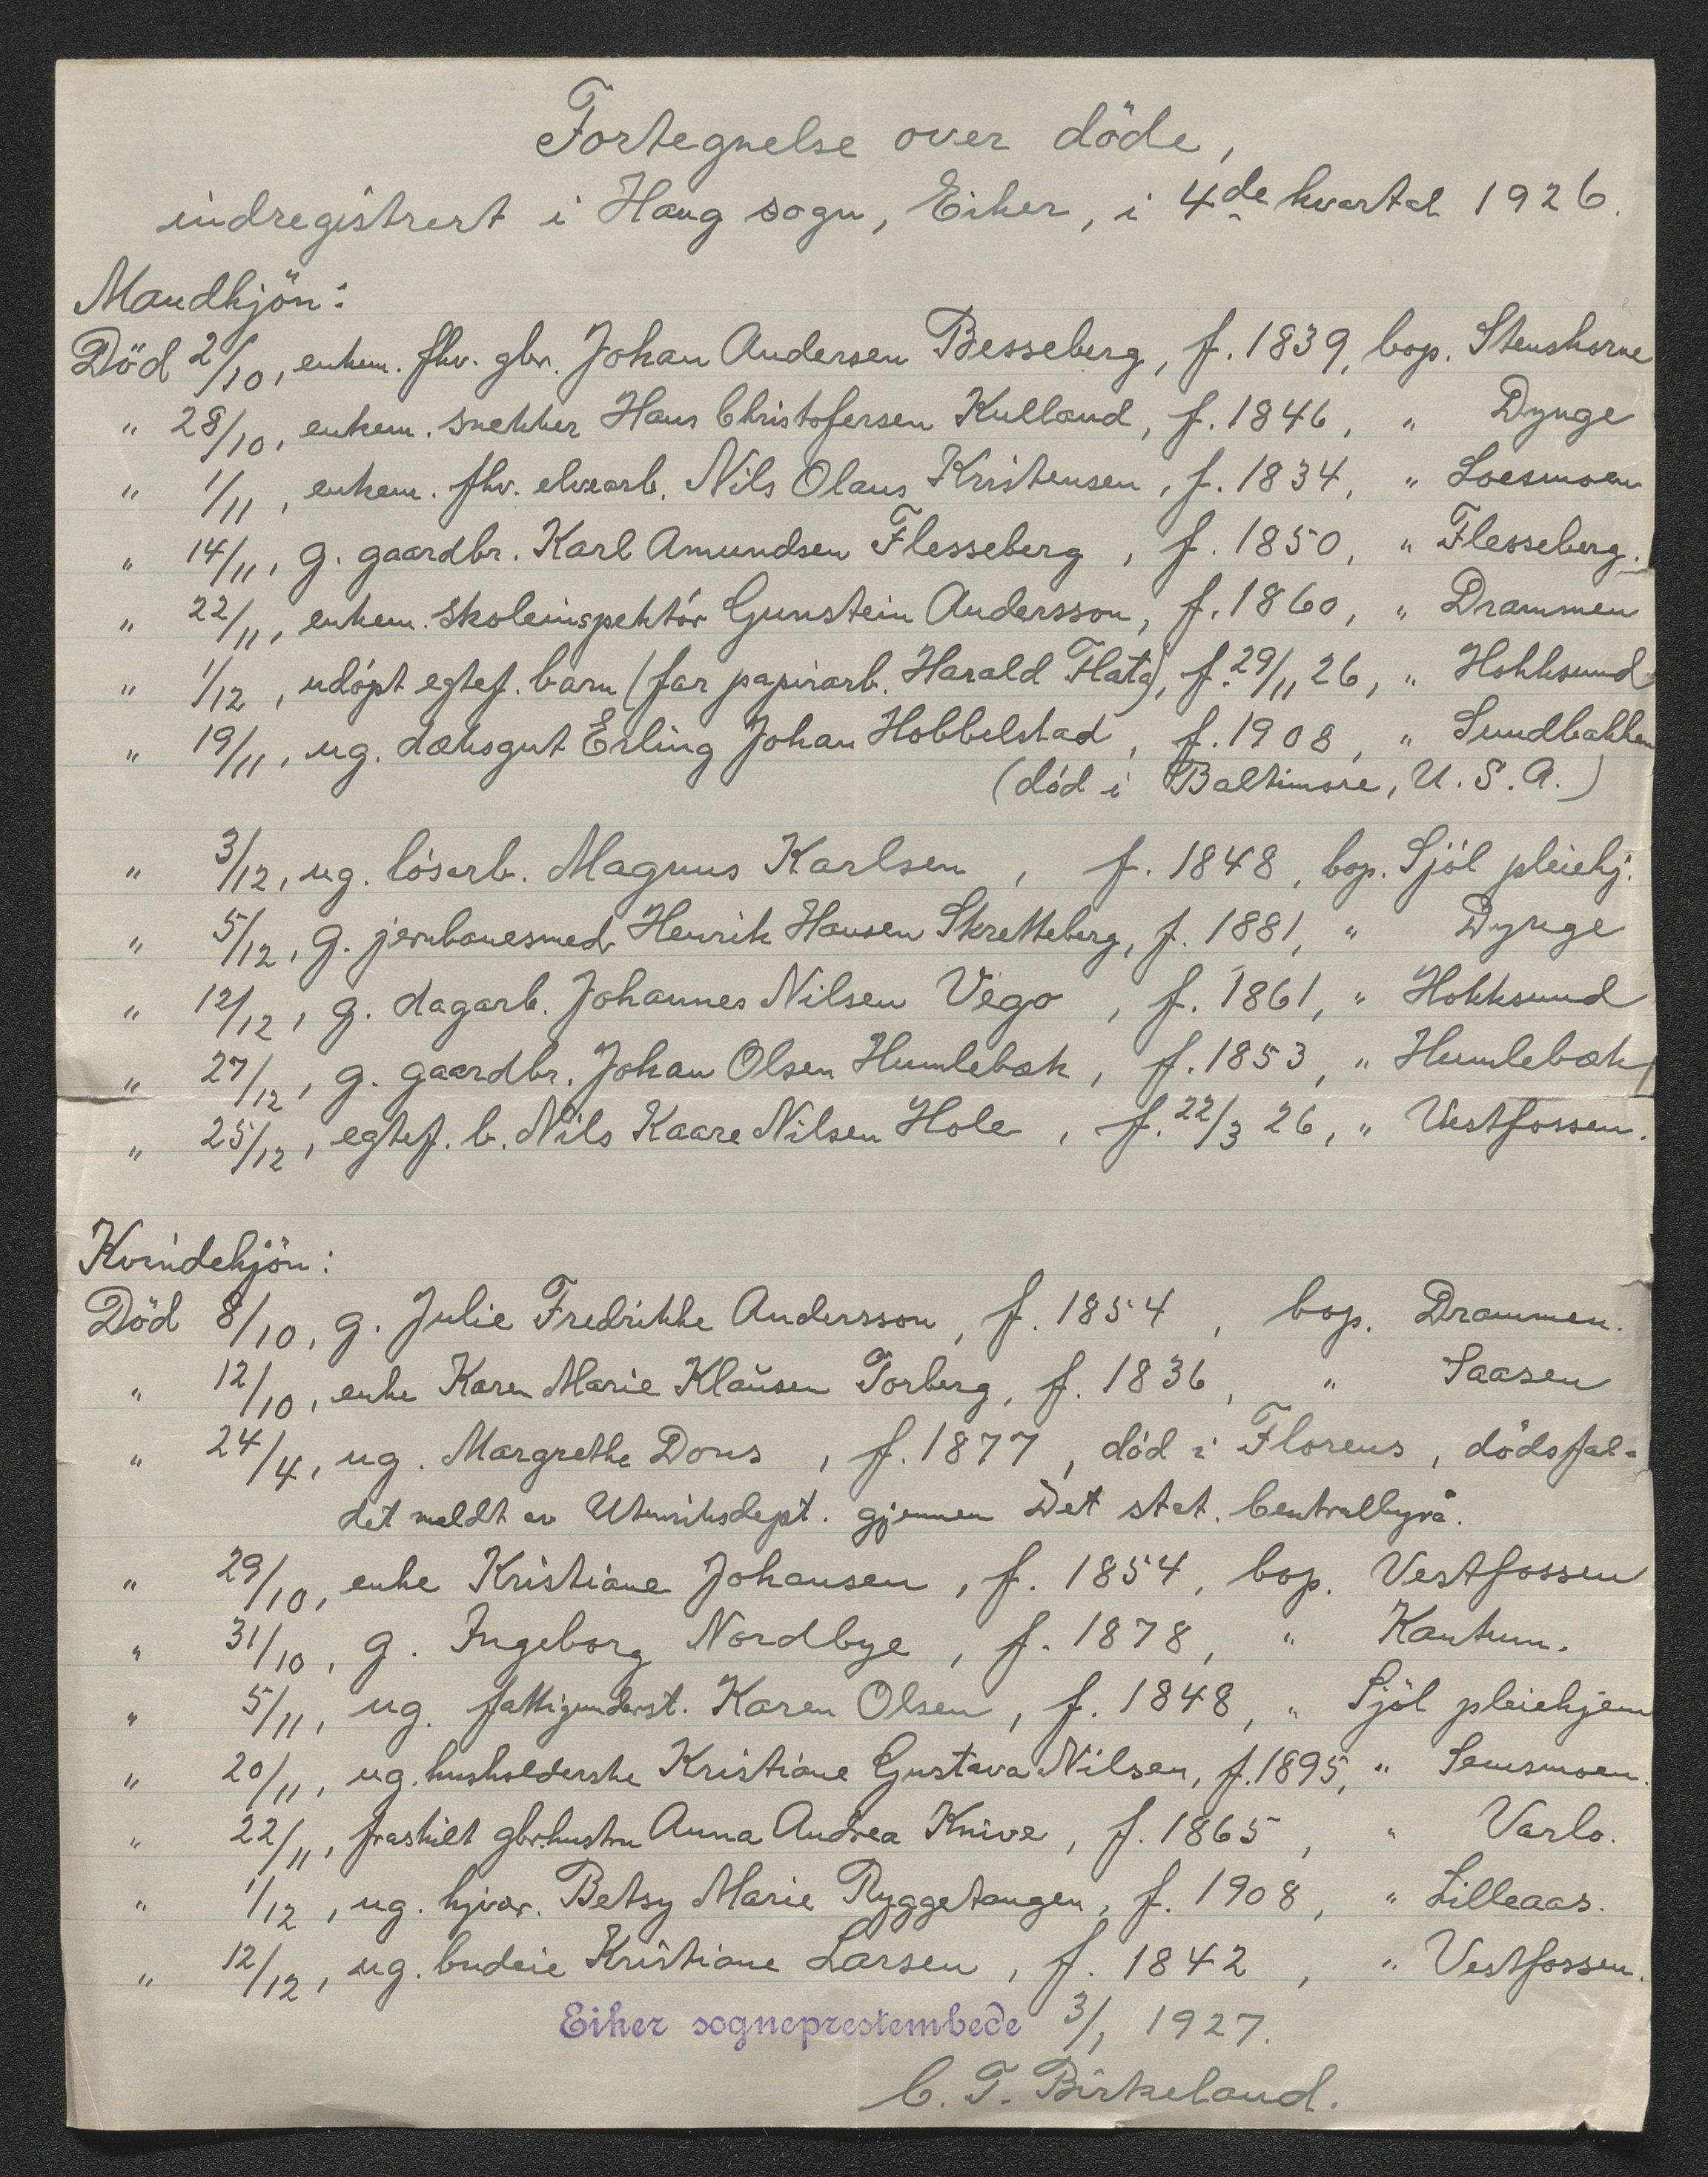 Fortegnelse over döde,
indregistrert i Haug sogn, Eiker, i 4de kvartal 1926.
Mandkjön:
Död 2/10, enkem. fhv. gbr. Johan Andersen Besseberg, f. 1839, bop. Stenshorne
" 28/10, enkem. snekker Hans Christofersen Kulland, f. 1846, " Dynge
" 1/11, enkem. fhv. elvearb. Nils Olaus Kristensen, f. 1834, " Loesmoen
" 14/11, g. gaardbr. Karl Amundsen Flesseberg, f. 1850, " Flesseberg.
" 22/11, enkem. skoleinspektör Gunstein Andersson, f. 1860, " Drammen
" 1/12, udöpt egtef. barn (far papirarb. Harald Flata), f. 29/11 26, " Hokksund
" 19/11, ug. dæksgut Erling Johan Hobbelstad, f. 1908, " Sundbakken
(död i Baltimore, U.S.A.)
" 3/12, ug. lösarb. Magnus Karlsen, f. 1848, bop. Sjöl pleiehj.
" 5/12, g. jernbanesmed Henrik Hansen Skretteberg, f. 1881, " Dynge
" 12/12, g. dagarb. Johannes Nilsen Vego, f. 1861, " Hokksund
" 27/12, g. gaardbr. Johan Olsen Humlebæk, f. 1853, " Humlebæk
" 25/12, egtef. b. Nils Kaare Nilsen Hole, f. 22/3 26, " Vestfossen.
Kvindekjön:
Död 8/10, g. Julie Fredrikke Andersson, f. 1854, bop. Drammen.
" 12/10, enke Karen Marie Klausen Torberg, f. 1836, " Saasen
" 24/4, ug. Margrethe Dons, f. 1877, död i Florens, dödsfal-
det meldt av Utenriksdept. gjennem Det stat. Centralbyrå.
" 29/10, enke Kristiane Johansen, f. 1854, bop. Vestfossen
" 31/10, g. Ingeborg Nordbye, f. 1878, " Kantum.
" 5/11, ug. fattigunderst. Karen Olsen, f. 1848, " Sjöl pleiehjem
" 20/11, ug. husholderske Kristiane Gustava Nilsen, f. 1895, " Semsmoen.
" 22/11, fraskilt gbr.hustru Anna Andrea Knive, f. 1865, " Varlo.
" 1/12, ug. hjvær. Betsy Marie Ryggetangen, f. 1908, " Lilleaas.
" 12/12, ug. budeie Kristiane Larsen, f. 1842, " Vestfossen.
Eiker sogneprestembede 3/1 1927.
C. T. Birkeland.